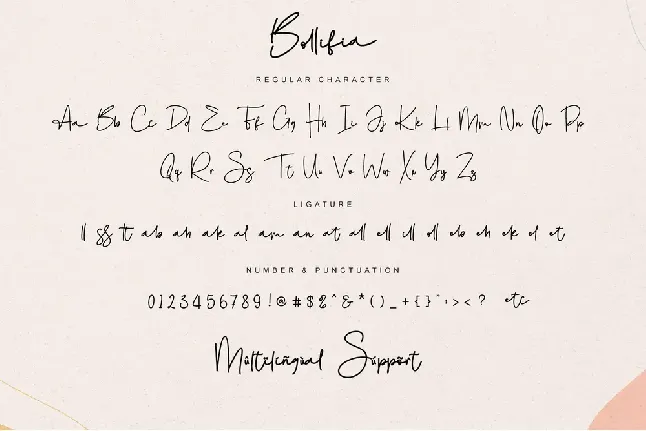 Bollifia
REGULAR CHARACTER
Aa Bb Cc Dd Ee Ff Gg Hh Ii Jj Kk Ll Mm Nn Oo Pp
Qq Rr Ss Tt Uu Vv Ww Xx Yy Zz
LIGATURE
ll ss tt ab ah ak al am an at all ell ill oll eb eh ek el et
NUMBER & PUNCTUATION
0123456789!@#$%^&*()_+{}":><? etc
Mültilìñgùál Süppört